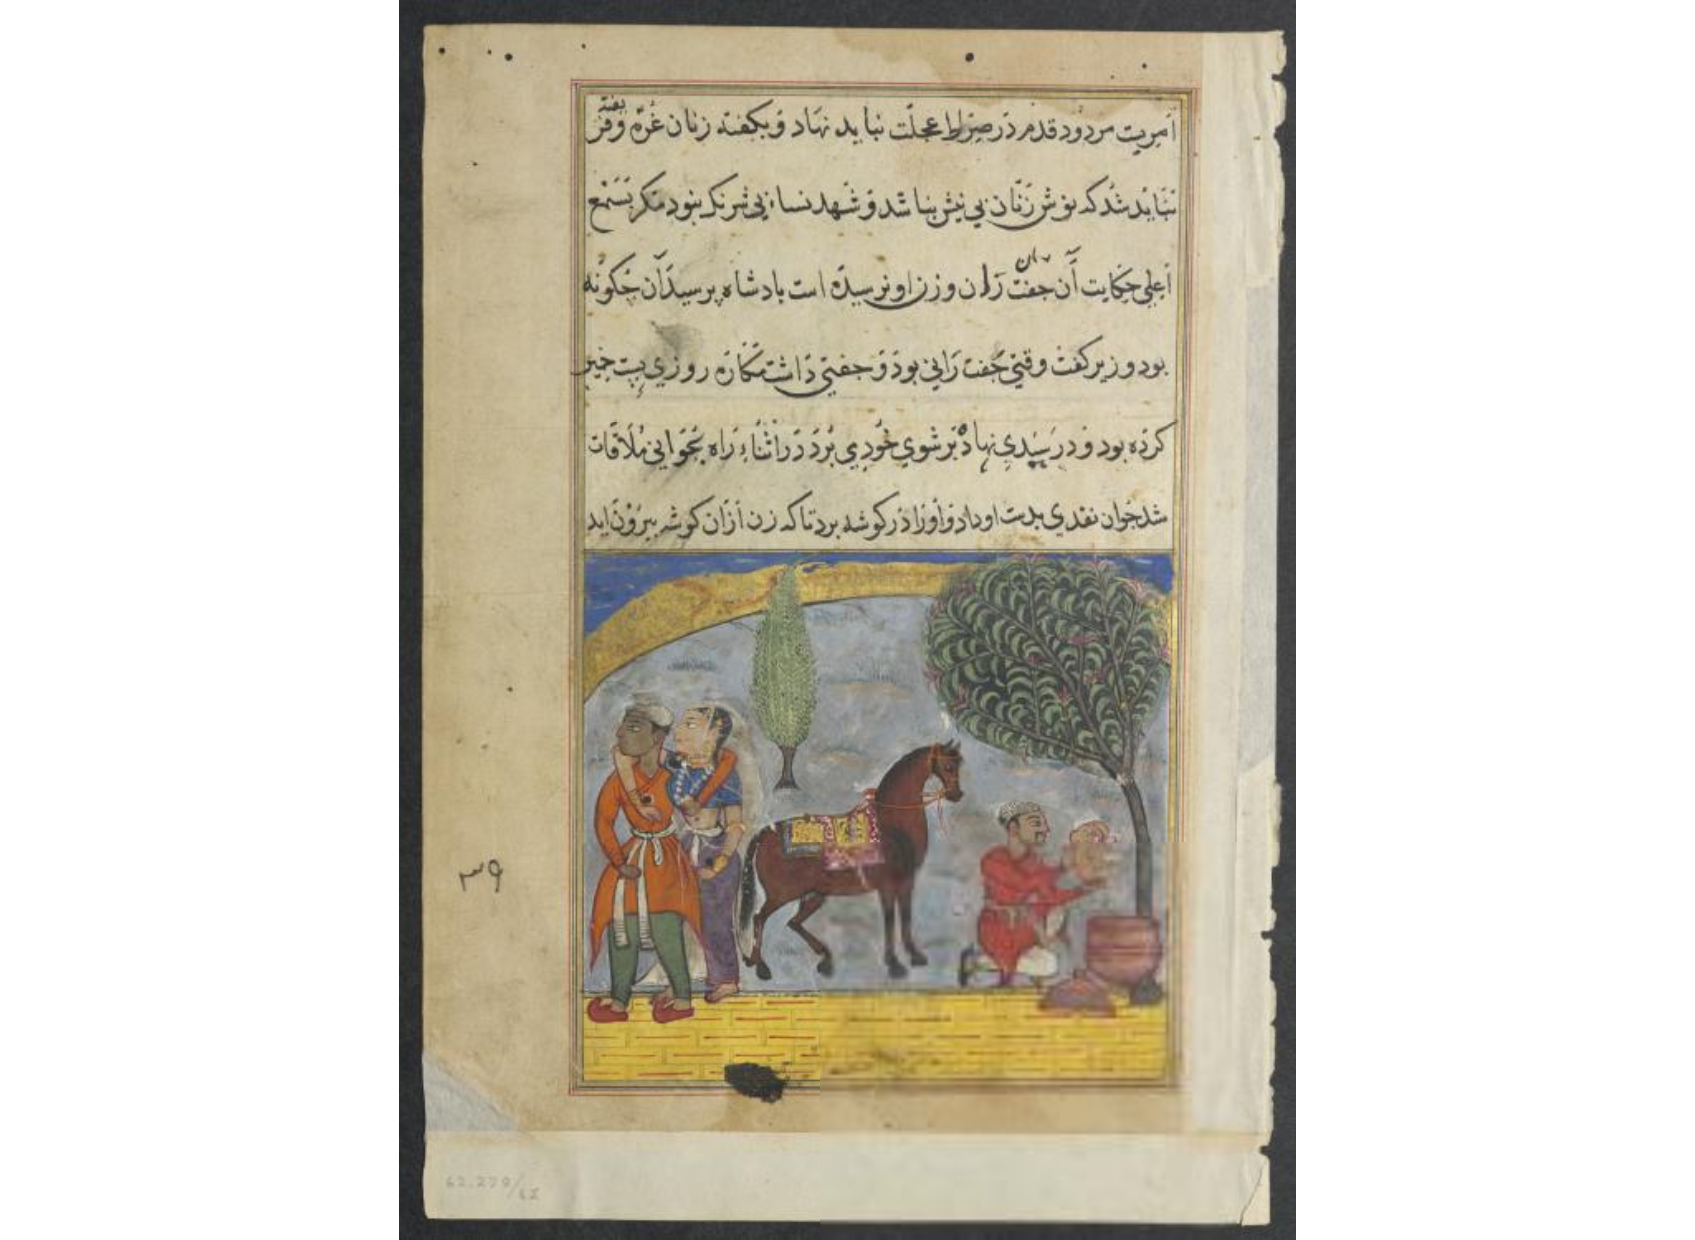 امریت مردود قدم در صراط عجلت نباید نهاد و بکفته زنان غره و فریفته
نباید شد که نوش زنان بی نیش نباشد و شهد نساء بی شرنک نبود مکر بسمع
اعلی حکایت آن جفت ران و زن او نرسیده است بادشاه برسید آن چکونه
بود وزیر کفت وقتی جفت رانی بود و جفتی داشت مکاره روزی
کرده بود و در سبدی نهاده بر شوی خود می برد در اثناء راه بجوانی ملاقات
شد جوان نقدی بدست او داد و اورا در کوشه برد تا که زن ازان کوشه بیرون اید
۳۹
62.279/